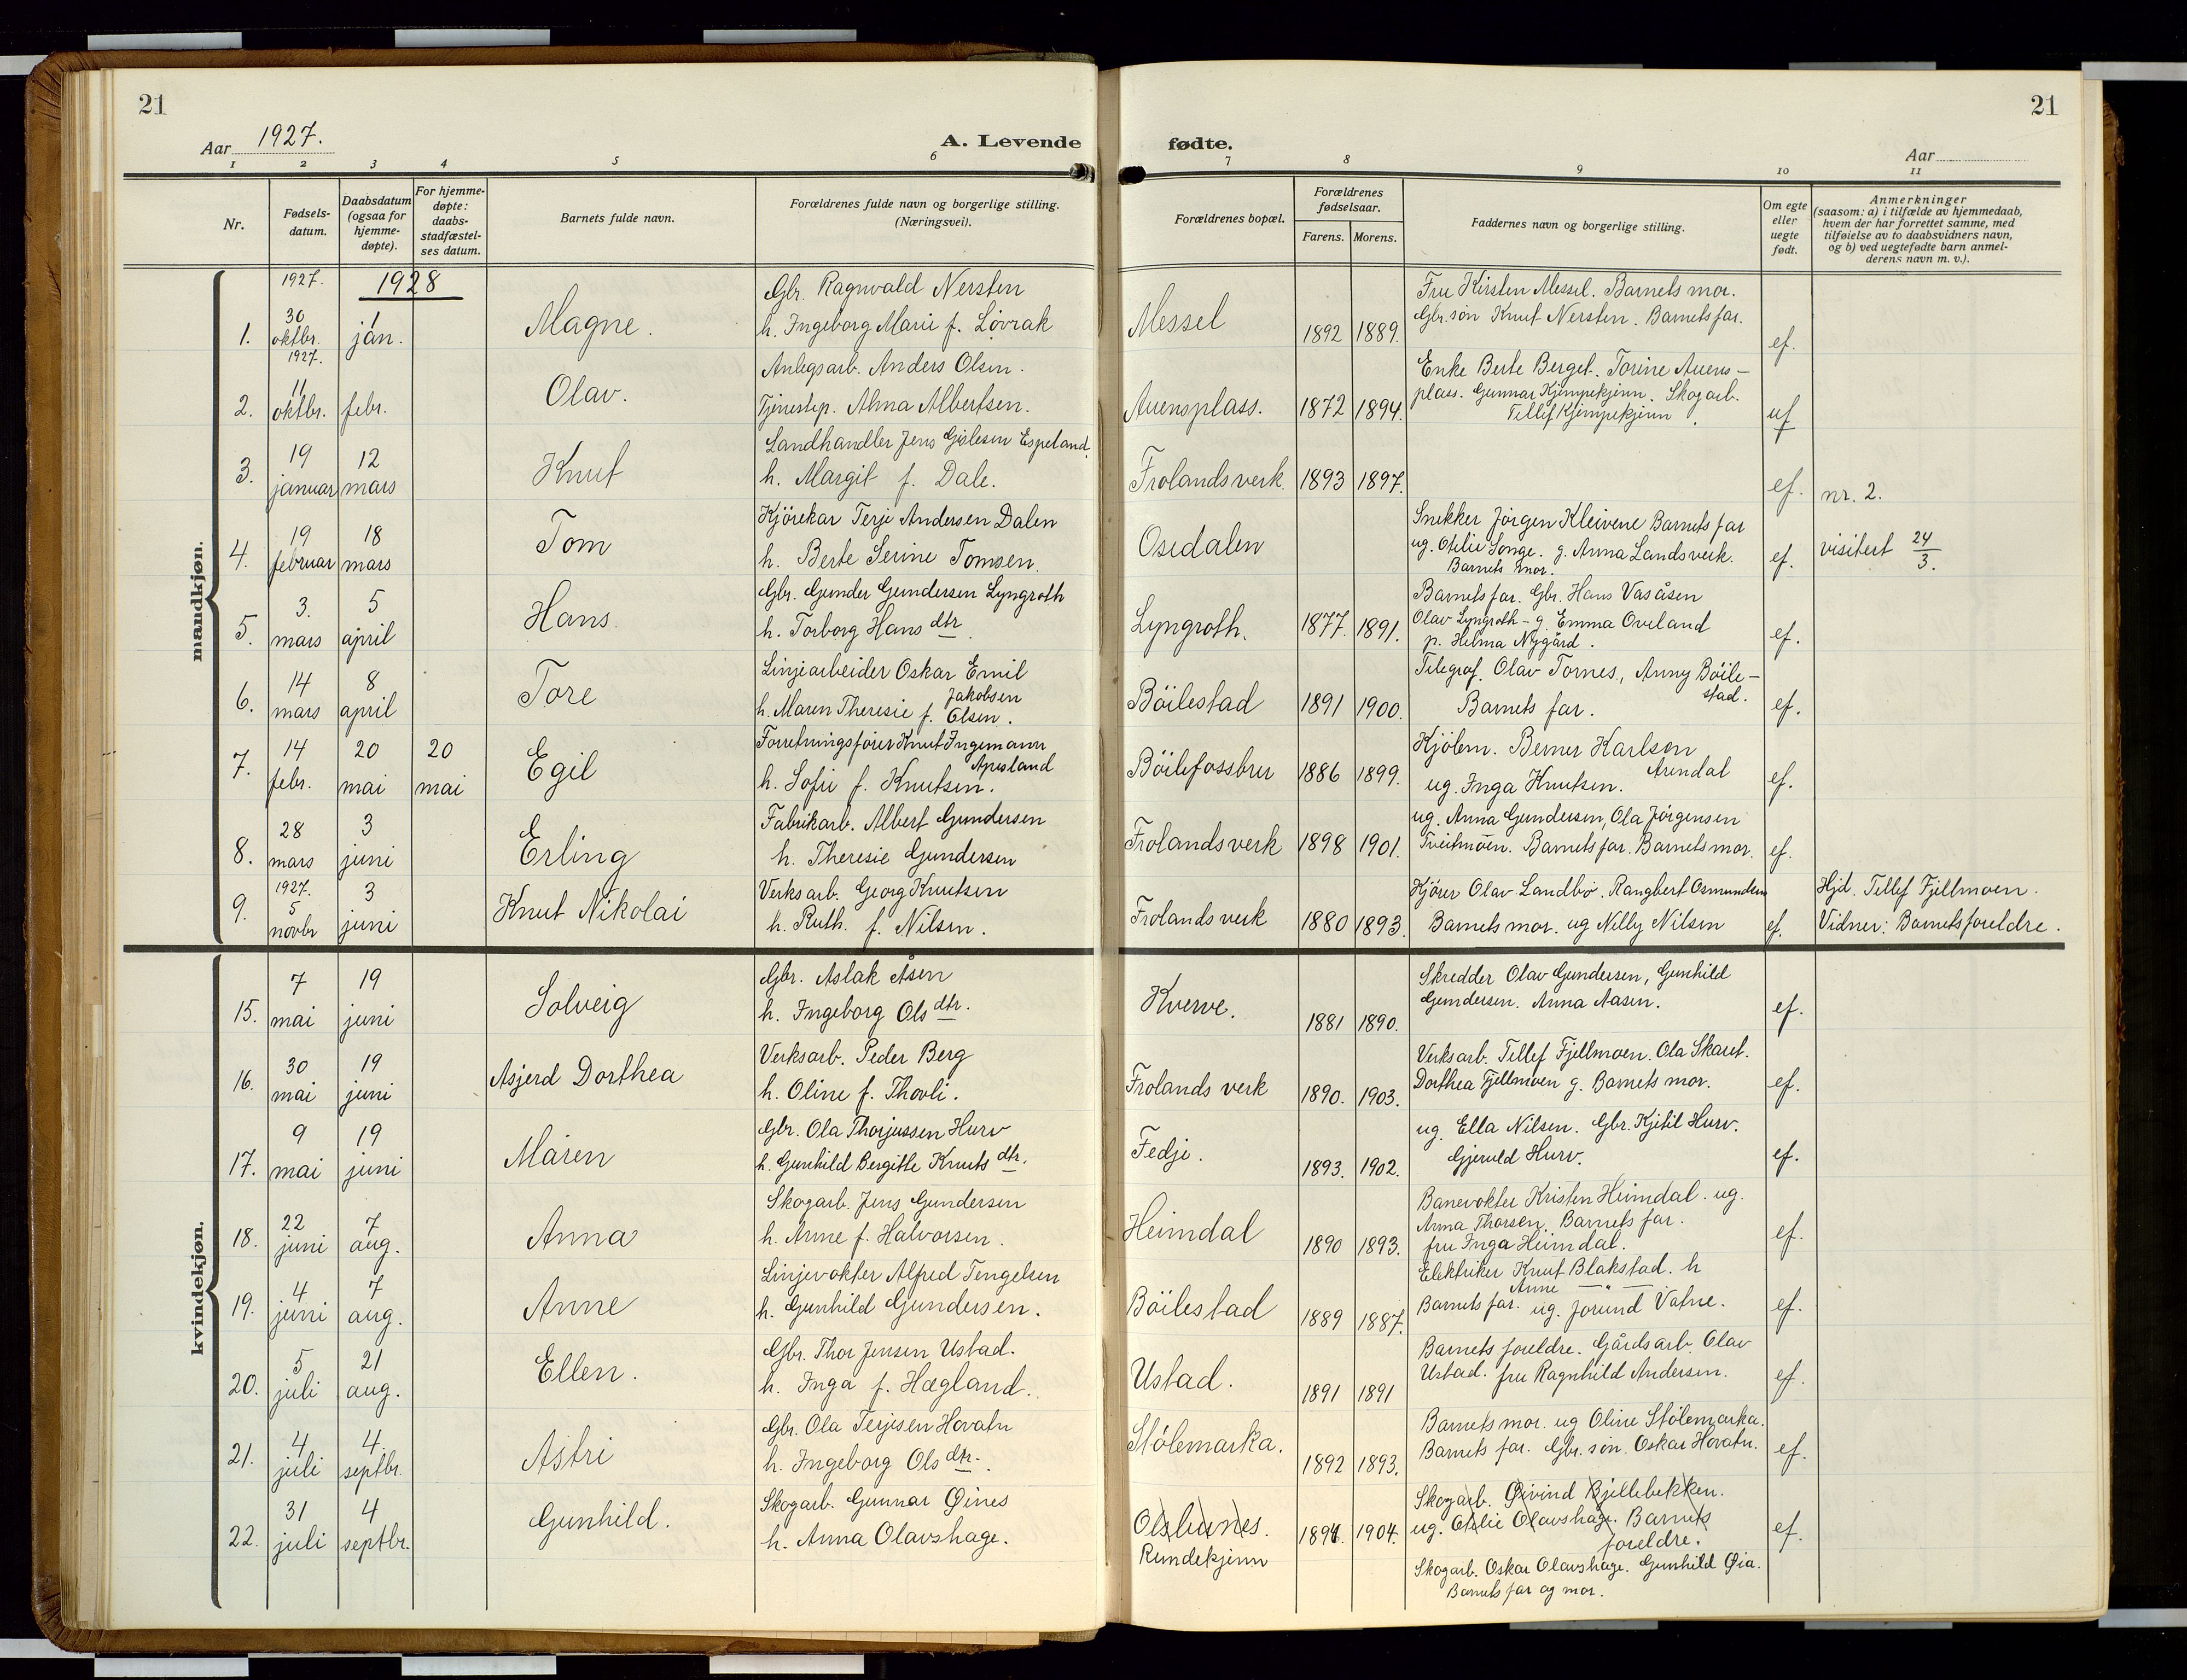 21
21
Aar 1927.
A. Levende fødte.
Aar
1 2 3 4 5 6 7 8 9 10 11
Nr.
Fødsels-datum.
Daabsdatum (ogsaa for hjemme-døpte).
For hjemme-døpte: daabs-stadfæstel-ses datum.
Barnets fulde navn.
Forældrenes fulde navn og borgerlige stilling. (Næringsvei).
Forældrenes bopæl.
Forældrenes fødselsaar.
Farens. Morens.
Faddernes navn og borgerlige stilling.
Om egte eller uegte født.
Anmerkninger
(saasom: a) i tilfælde av hjemmedaab, hvem der har forrettet samme, med tilføielse av to daabsvidners navn, og b) ved uegtefødte barn anmel-derens navn m. v.).
mandkjøn.
1927. 1928
1. 30 oktbr. 1 jan. Magne. Gbr. Ragnvald Nersten
h. Ingeborg Marie f. Løvrak
Messel 1892 1889. Fru Kirsten Messel. Barnets mor.
Gbr. søn Knut Nersten. Barnets far. ef.
2. 1927. 11 oktbr. febr. Olav. Anlegsarb. Anders Olsen.
Tjenestep. Alma Albertsen.
Auensplass. 1872 1894. Enke Berte Berget. Torine Auens-
plass. Gunnar Kjempekjenn. Skogarb.
Tellef Kjempekjenn. uf
3. 19 januar 12 mars Knut Landhandler Jens Gjølesen Espeland.
h. Margit f. Dale.
Frolandsverk. 1893 1897. ef. nr. 2.
4. 19 februar 18 mars Tom Kjørekar Terje Andersen Dalen
h. Berte Serine Tomsen.
Osedalen Snekker Jørgen Kleivene Barnets far
ug. Otelie Songe. g. Anna Landsverk.
Barnets mor. ef. visitert 24/3.
5. 3. mars 5 april Hans. Gbr. Gunder Gundersen Lyngroth
h. Torborg Hansdtr.
Lyngroth. 1877. 1891. Barnets far. Gbr. Hans Vasåsen
Olav Lyngroth - g. Emma Oveland
p. Helma Nygård. ef.
6. 14 mars 8 april Tore Linjearbeider Oskar Emil
Jakobsen
h. Maren Theresie f. Olsen.
Böilestad 1891 1900. Telegraf. Olav Tornes, Anny Böile-
stad.
Barnets far. ef.
7. 14 febr. 20 mai 20 mai Egil Forretningsfører Knut Ingemann
Apesland
h. Sofie f. Knutsen.
Böilefossbru 1886 1899. Kjølem. Berner Karlsen
Arendal
ug. Inga Knutsen. ef.
8. 28 mars 3 juni Erling Fabrikarb. Albert Gundersen
h. Theresie Gundersen
Frolandsverk 1898 1901. ug. Anna Gundersen, Ola Jørgensen
Tveitmoen. Barnets far. Barnets mor. ef.
9. 1927. 5 novbr 3 juni Knut Nikolai Verksarb. Georg Knutsen
h. Ruth. f. Nilsen.
Frolandsverk 1880 1893. Kjører Olav Landbø. Rangbert Osmundsen
Barnets mor. ug Nelly Nilsen ef. Hjd. Tellef Fjellmoen.
Vidner: Barnets foreldre.
kvindekjøn.
15. 7 mai 19 juni Solveig Gbr. Aslak Åsen
h. Ingeborg Olsdtr.
Kverve. 1881 1890. Skredder Olav Gundersen, Gunhild
Gundersen. Anna Aasen. ef.
16. 30 mai 19 juni Asjerd Dorthea Verksarb. Peder Berg
h. Oline f. Thovli.
Frolands verk 1890. 1903. Verksarb. Tellef Fjellmoen. Ola Skaret.
Dorthea Fjellmoen g. Barnets mor. ef.
17. 9 mai 19 juni Maren Gbr. Ola Thorjussen Hurv
h. Gunhild Bergitte Knutsdtr.
Fedje. 1893. 1902. ug. Ella Nilsen. Gbr. Kjetil Hurv.
Gjeruld Hurv. ef.
18. 22 juni 7 aug. Anna Skogarb. Jens Gundersen
h. Anne f. Halvorsen.
Heimdal 1890 1893. Banevokter Kristen Heimdal. ug.
Anna Thorsen. Barnets far.
fru Inga Heimdal. ef.
19. 4 juni 7 aug. Anne Linjevokter Alfred Tengelsen
h. Gunhild Gundersen.
Böilestad 1889 1887. Elektriker Knut Blakstad. h
Anne — " —
Barnets far. ug. Jorund Vatne. ef.
20. 5 juli 21 aug. Ellen. Gbr. Thor Jensen Ustad.
h. Inga f. Hægland.
Ustad. 1891 1891 Barnets foreldre. Gårdsarb. Olav
Ustad. fru Ragnhild Andersen. ef.
21. 4 juli 4. septbr. Astri Gbr. Ola Terjesen Hovatn
h. Ingeborg Olsdtr.
Stølemarka. 1892 1893. Barnets mor. ug Oline Stølemarka.
Barnets far. Gbr. søn. Oskar Hovatn. ef.
22. 31 juli 4 septbr. Gunhild. Skogarb. Gunnar Øines
h. Anna Olavshage.
Rundekjenn 1894 1904. Skogarb. Øivind Bjellebekken.
ug. Otelie Olavshage. Barnets
foreldre. ef.
Skogarb. Oskar Olavshage. Gunhild Øia.
Barnets far og mor.